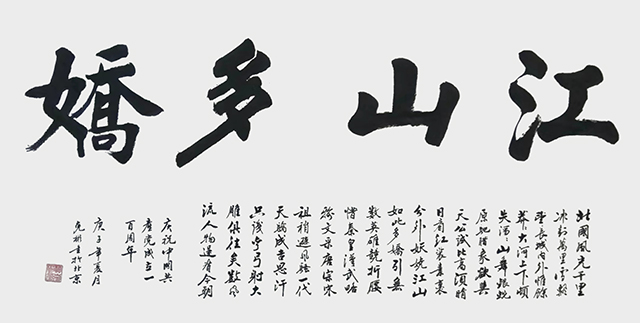 江山多嬌
北國風光千里
冰封萬里雪飄
望長城内外惟餘
莽大河上下頓
失滔〻山舞銀蛇
原馳蠟象欲與
天公試比高須晴
日看紅裝素裹
分外妖嬈江山
如此多嬌引無
數英雄競折腰
惜秦皇漢武略
輸文采唐宗宋
祖稍遜風騷一代
天驕成吉思汗
只識彎弓射大
雕俱往矣數風
流人物還看今朝
慶祝中國共
産党成立一
百周年
庚子年夏月
書於北京